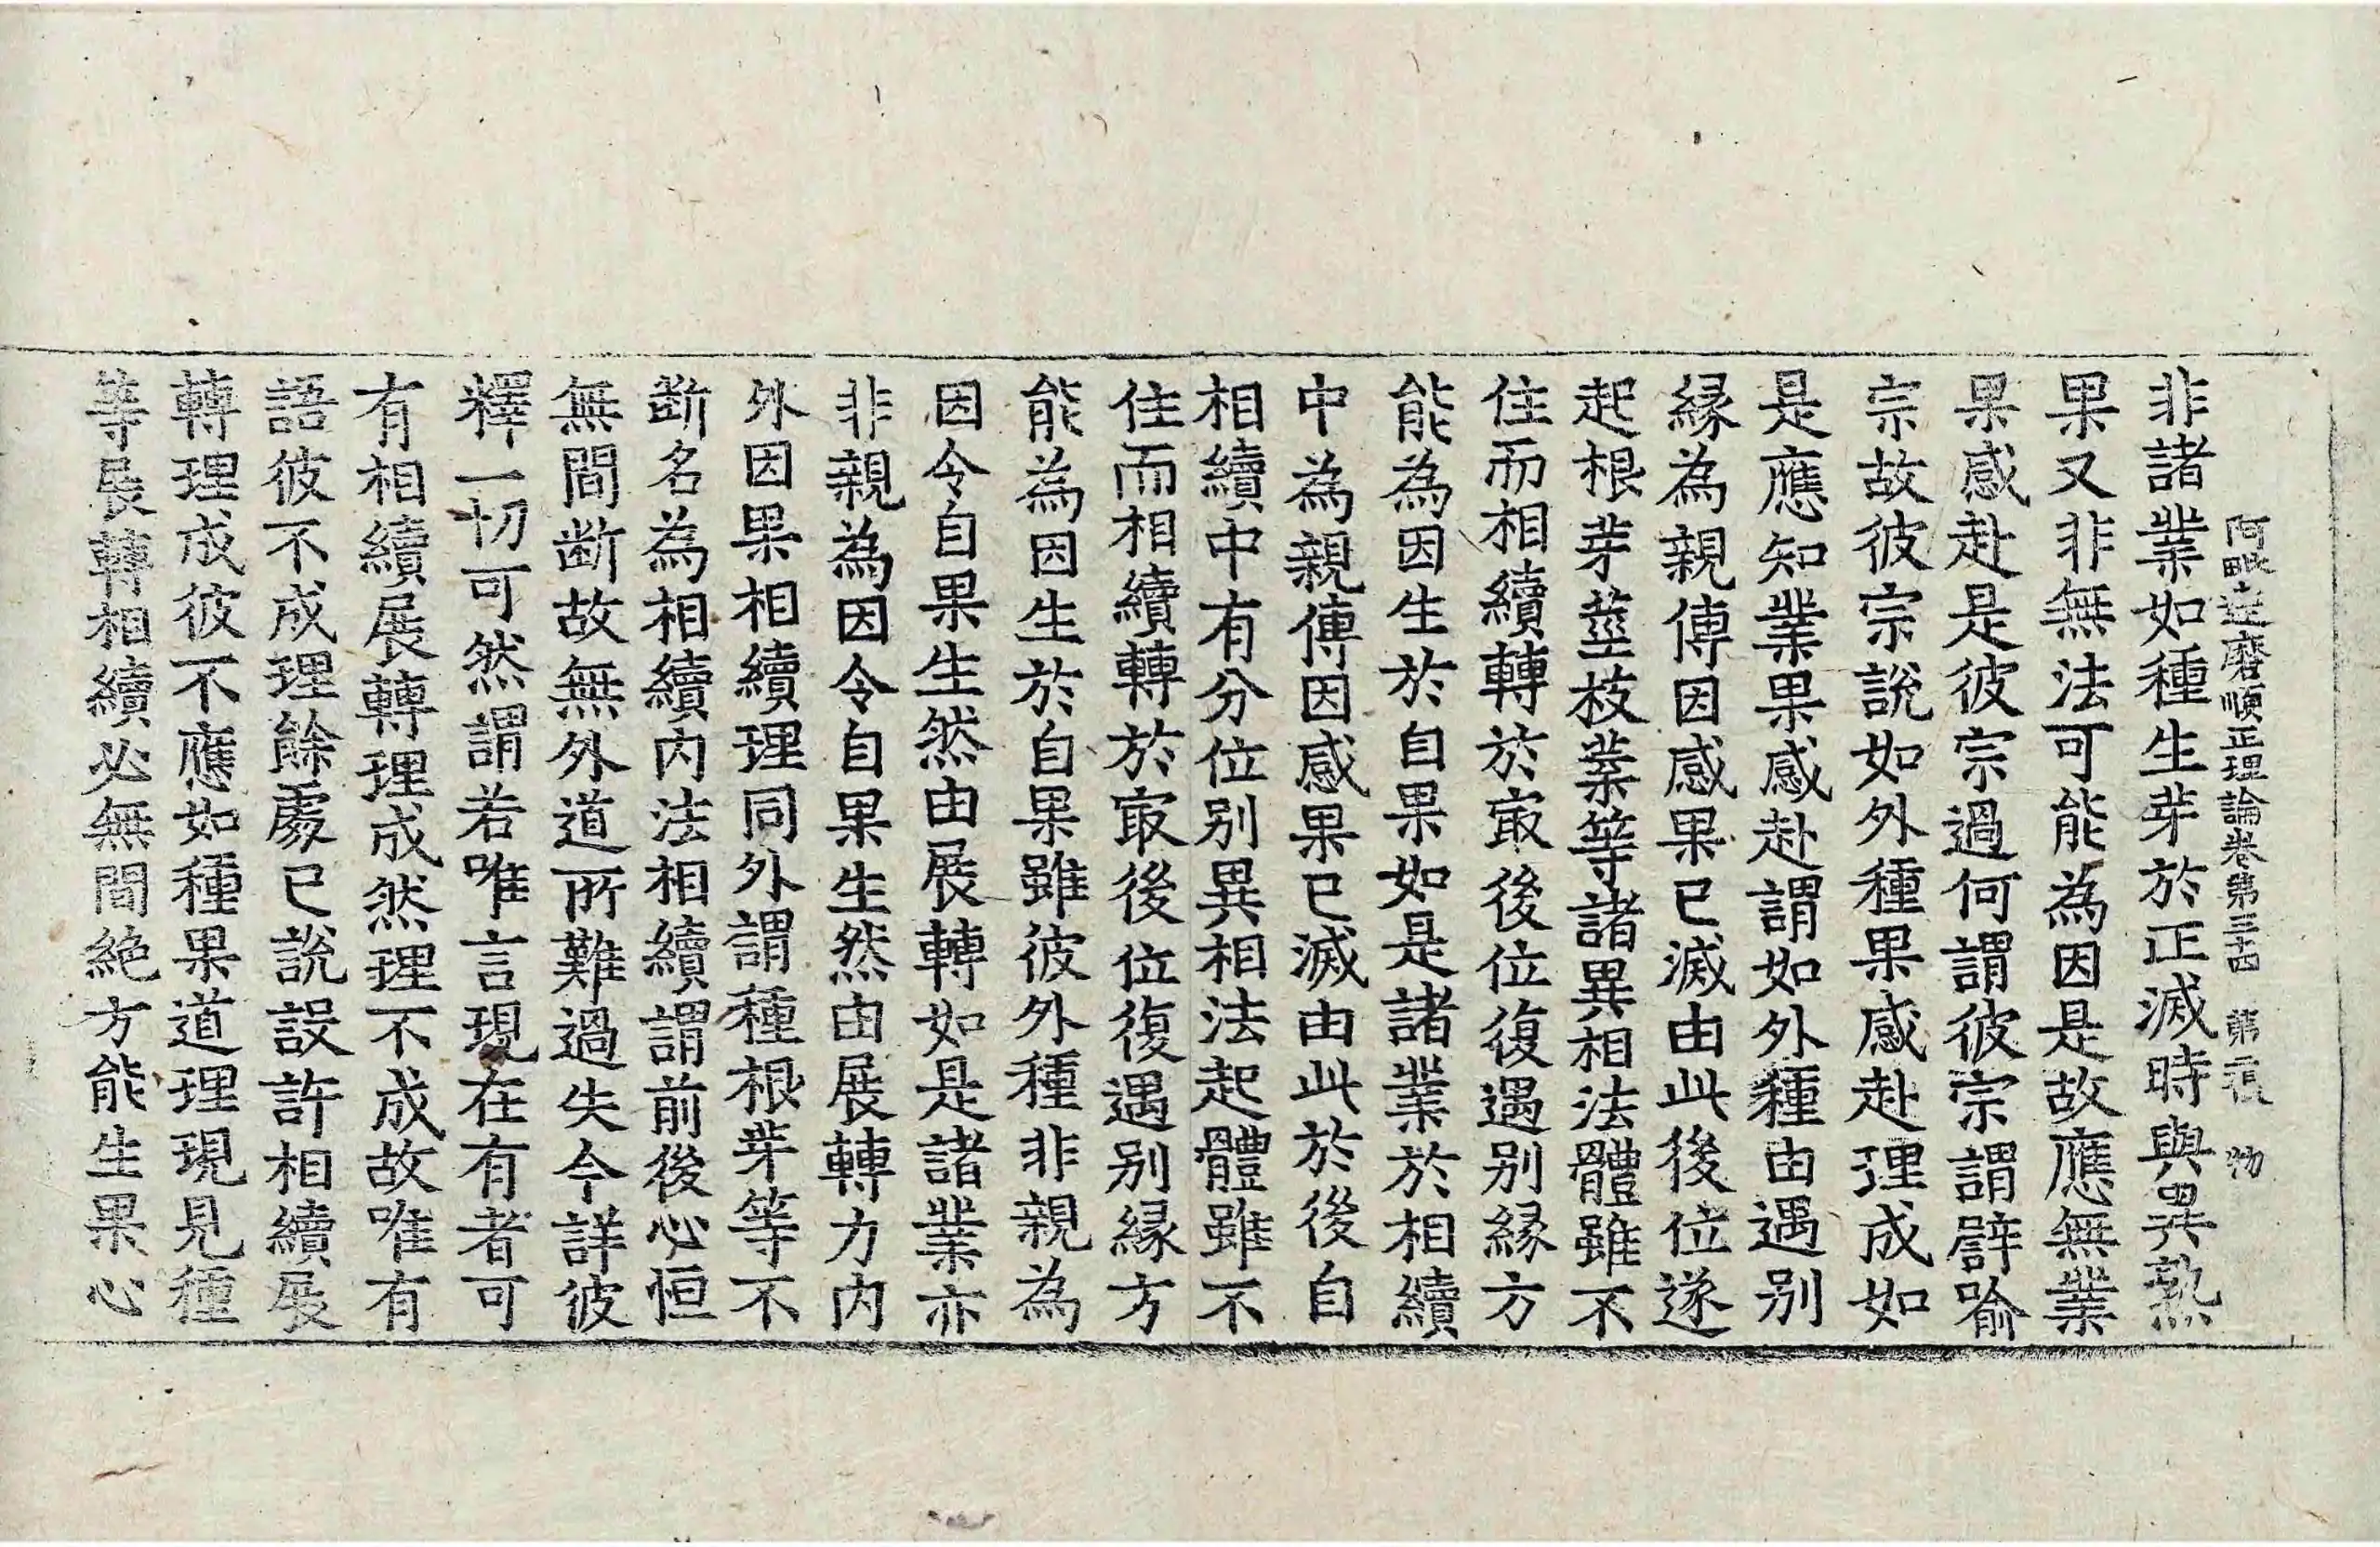 非諸業如種生芽於正滅時與異熟
阿毗達磨順正理論卷第三十四 第二張 物
果又非無法可能為因是故應無業
果感赴是彼宗過何謂彼宗謂譬喻
宗故彼宗說如外種果感赴理成如
是應知業果感赴謂如外種由遇別
緣為親傳因感果已滅由此後位遂
起根芽莖枝葉等諸異相法體雖不
住而相續轉於冣後位復遇別緣方
能為因生於自果如是諸業於相續
中為親傳因感果已滅由此於後自
相續中有分位別異相法起體雖不
住而相續轉於冣後位復遇別緣方
能為因生於自果雖彼外種非親為
因令自果生然由展轉如是諸業亦
非親為因令自果生然由展轉力內
外因果相續理同外謂種根芽等不
斷名為相續內法相續謂前後心恒
無間斷故無外道所難過失今詳彼
釋一切可然謂若唯言現在有者可
有相續展轉理成然理不成故唯有
語彼不成理餘處已說設許相續展
轉理成彼不應如種果道理現見種
等展轉相續必無間絕方能生果心